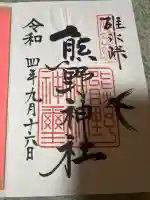 碓氷峠
熊野神社
令和四年九月十六日